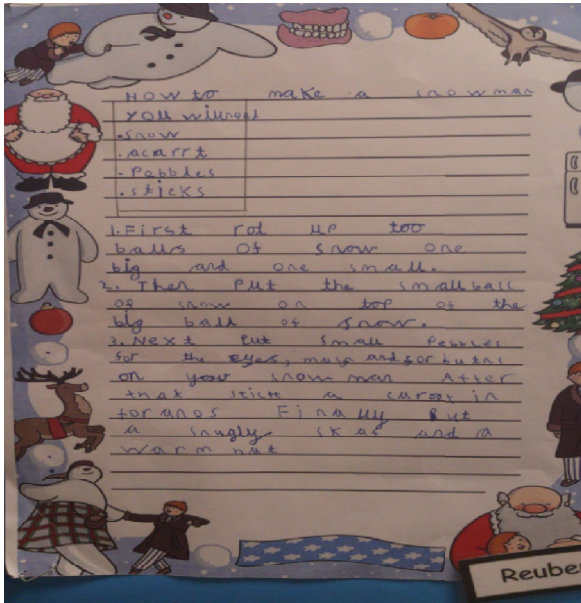 How to make a snowman
You wiuneed
.snow
.acarrt
.Pebbles
.sticks
1.First roll up too
balls of snow one
big and one small.
2. Then Put the small ball
of snow on top of the
big ball of snow.
3.Next Put small Pebbles
for the eyes, and for butns
on your snow man After
that stick a carrot in
for anos Finally Put
a snugly skaf and a
warm hat
Reuben